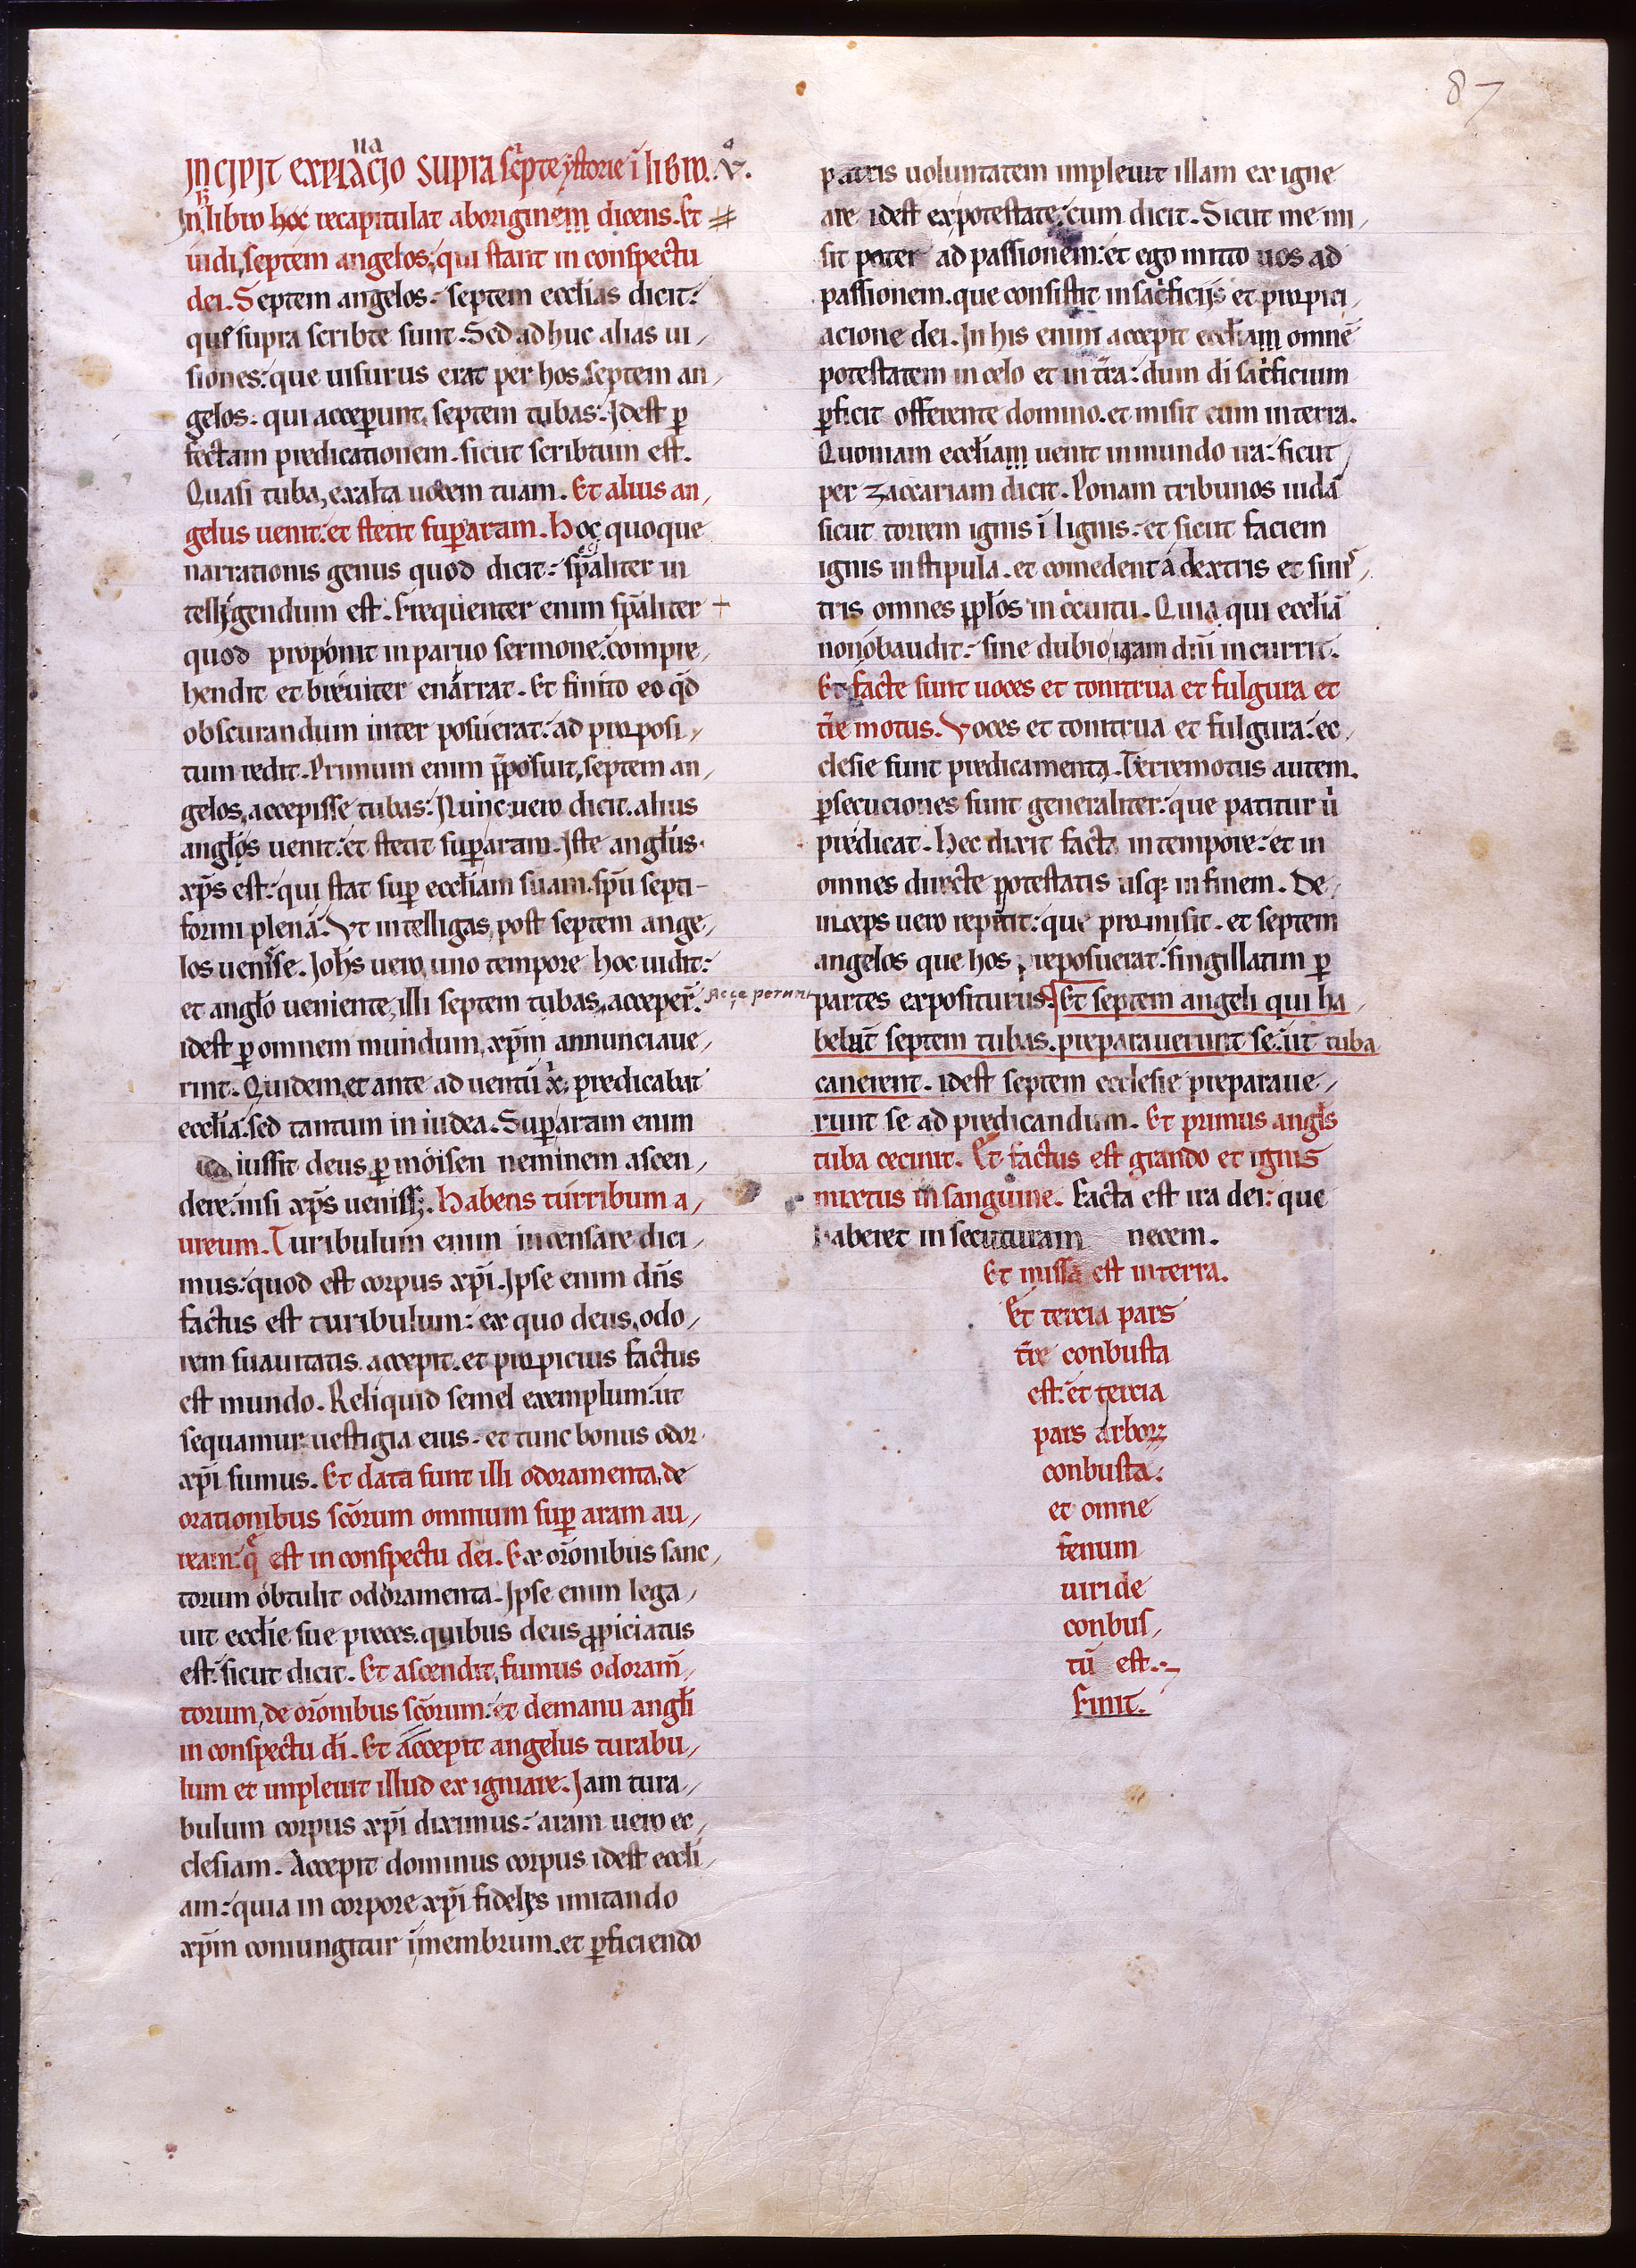 87
Incipit explanacio supra scpte ystorie ĩ libro. v̊.
In libro hoc recapitulat aboriginem dicens. Et
uidi septem angelos: qui stant in conspectu
dei. Septem angelos: septem ecclias dicit:
que supra scribte sunt. Sed adhuc alias ui,
siones: que uisurus erat per hos septem an,
gelos: qui acceperunt septem tubas: Idest p̱
fectam predicationem. sicut scribtum est.
Quasi tuba, exalta uocem tuam. Et alius an,
gelus uenit: et stetit sup̱ aram. Hoc quoque
narrationis genus quod dicit: sp̄aliter in
telligendum est. Frequenter enim sp̄aliter +
quod proponit in paruo sermone: compre,
hendit et breuiter enarrat. Et finito eo qđ
obscurandum inter posuerat: ad proposi,
tum redit. Primum enim p̄posuit, septem an,
gelos, accepisse tubas: Nunc uero dicit. alius
anglos uenit: et stetit sup̱ aram. Iste anglus.
xp̄s est: qui stat sup̱ eccliam suam. sp̄u septi-
formi plenā. Vt intelligas, post septem ange,
los uenisse. Iohs uero, uno tempore hoc uidit:
et anglo ueniente, illi septem tubas, acceper̄. Acçe perunt
idest p̱ omnem mundum, xp̄m annunciaue,
rint. Quidem, et ante aduentū x̄i predicabat
ecclia. sed tantum in iudea. Sup̱ aram enim
iussit deus p̱ moisen neminem ascen,
dere: nisi xp̄s uenisset. Habens turribum a,
ureum. Turibulum enim incensare dici,
mus: quod est corpus xp̄i. Ipse enim dn̄s
factus est turibulum: ex quo deus, odo,
rem suauitatis accepit. et propicius factus
est mundo. Reliquid semel exemplum: ut
sequamur uestigia eius. et tunc bonus odor.
xp̄i sumus. Et data sunt illi odoramenta, de
orationibus scōrum omnium sup̱ aram au,
ream: q̄ est in conspectu dei. Ex orōnibus sanc,
torum obtulit odoramenta. Ipse enim lega,
uit ecclie sue preces. quibus deus propiciatus
est: sicut dicit. Et ascendit, fumus odoram̄,
torum, de orōnibus scōrum: et demanu angli
in conspectu di. Et accepit angelus turabu,
lum et impleuit illud ex igniare. Iam tura,
bulum corpus xp̄i diximus: aram uero ec,
clesiam. Accepit dominus corpus idest eccli,
am: quia in corpore xp̄i fidelis imitando
xp̄m coniungitur ī membrum. et p̱ficiendo
patris uoluntatem impleuit illam ex igne
are idest ex potestate: cum dicit. Sicut me mi,
sit pater ad passionem: et ego mitto uos ad
passionem. que consistit in sacrificiis et propici,
acione dei. In his enim accepit eccliam omnē
potestatem in celo et in t̄ra: dum di sacrificium
p̱ficit offerente domino. et misit eum in terra.
Quoniam eccliam uenit in mundo ira: sicut
per zaccariam dicit. Ponam tribunos iudā
sicut torrem ignis ī lignis: et sicut faciem
ignis in stipula. et comedent á dextris et sinis,
tris omnes pplos in circuitu. Quia qui eccliā
non obaudit: sine dubio iram dni incurrit.
Et facte sunt uoces et tonitrua et fulgura et
t̄re motus. Voces et tonitrua et fulgura: ec,
clesie sunt predicamenta. Terremotus autem.
p̱secuciones sunt generaliter: que patitur ū
predicat. Hec dixit facta in tempore: et in
omnes directe potestatis usq; in finem. De,
inceps uero repetit: que promisit. et septem
angelos que hos preposuerat: singillatim p̱
partes expositurus. Et septem angeli qui ha,
bebant septem tubas. preparauerunt se: ut tuba
canerent. idest septem ecclesie preparaue,
runt se ad predicandum. Et primus angls
tuba cecinit. Et factus est grando et ignis
mixtus in sanguine. Facta est ira dei: que
haberet in secuturam necem.
Et missa est in terra.
Et tercia pars
t̄re conbusta
est: et tercia
pars arborꝝ
conbusta:
et omne
fenum
uiride
conbus,
tū est.
Finit.